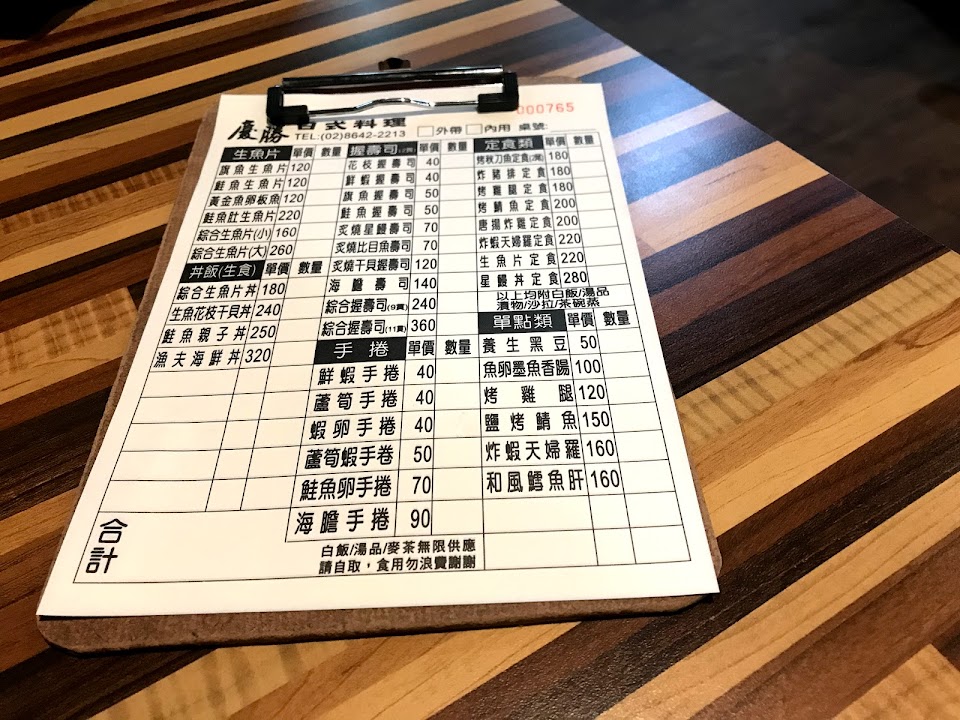 000765
優勝日式料理
TEL:(02)8642-2213 外帶 內用 桌號:
生魚片 單價 數量
旗魚生魚片 120
鮭魚生魚片 120
黃金魚卵板魚 120
鮭魚肚生魚片 220
綜合生魚片(小) 160
綜合生魚片(大) 260
丼飯(生食) 單價 數量
綜合生魚片丼 180
生魚花枝干貝丼 240
鮭魚親子丼 250
漁夫海鮮丼 320
合計
握壽司 單價 數量
花枝握壽司 40
鮮蝦握壽司 40
旗魚握壽司 50
鮭魚握壽司 50
炙燒星鰻壽司 70
炙燒比目魚壽司 70
炙燒干貝握壽司 120
海膽壽司 140
綜合握壽司(9貫) 240
綜合握壽司(11貫) 360
手捲 單價 數量
鮮蝦手捲 40
蘆筍手捲 40
蝦卵手捲 40
蘆筍蝦手卷 50
鮭魚卵手捲 70
海膽手捲 90
白飯/湯品/麥茶無限供應
請自取，食用勿浪費謝謝
定食類 單價 數量
烤秋刀魚定食 180
炸豬排定食 180
烤雞腿定食 180
烤鯖魚定食 200
唐揚炸雞定食 200
炸蝦天婦羅定食 220
生魚片定食 220
星鰻丼定食 280
以上均附白飯/湯品
漬物/沙拉/茶碗蒸
單點類 單價 數量
養生黑豆 50
魚卵墨魚香腸 100
烤雞腿 120
鹽烤鯖魚 150
炸蝦天婦羅 160
和風鱈魚肝 160